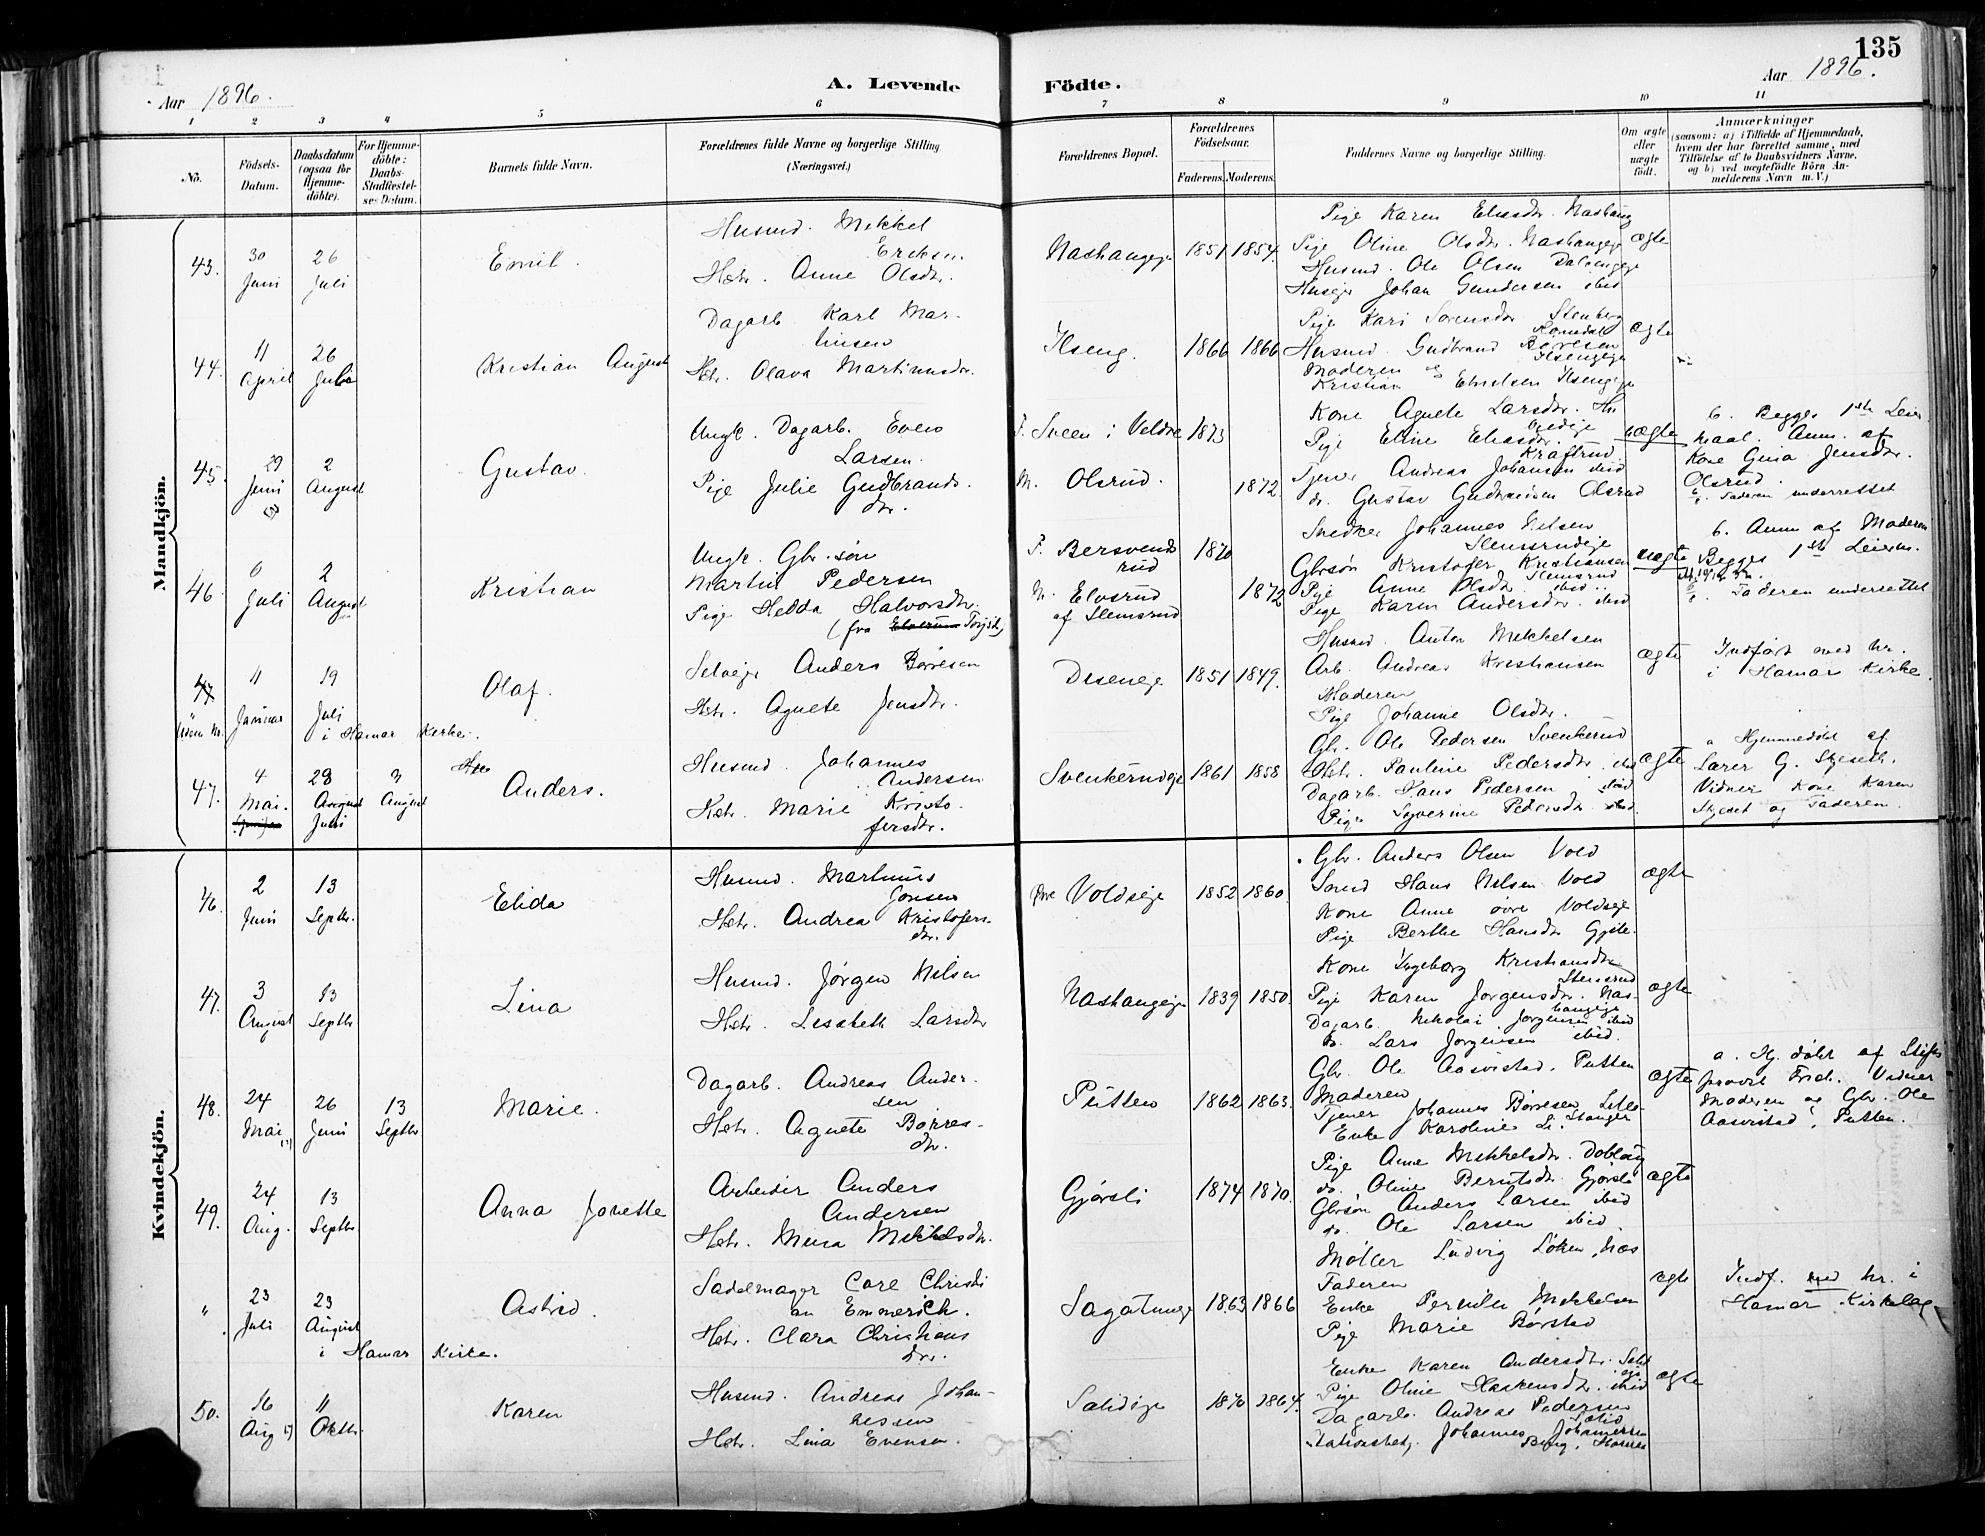 135
Aar 1896.
A. Levende
Födte.
Aar 1896.
1 2 3 4 5 6 7 8 9 10 11
No.
Födsels-
Datum.
Daabsdatum
(ogsaa for
Hjemme-
döbte).
For Hjemme-
döbte:
Daabs-
Stadfæstel-
ses Datum.
Barnets fulde Navn.
Forældrenes fulde Navne og borgerlige Stilling
(Næringsvei.)
Forældrenes Bopæl.
Forældrenes
Födselsaar.
Faderens. Moderens.
Faddernes Navne og borgerlige Stilling.
Om ægte
eller
uægte
födt.
Anmærkninger
(saasom: a) i Tilfælde af Hjemmedaab,
hvem der har forrettet samme, med
Tilföielse af to Daabsvidners Navne,
og b) ved uægtefödte Börn An-
melderens Navn m. V.)
Mandkjön.
43.
30
Juni
26
Juli
Emil.
Husmd. Mikkel
Eriksen
Hstr. Anne Olsdtr.
1851 1854.
Pige Karen Eliasdtr.
Pige Oline Olsdtr.
Husmd. Ole Olsen
Johan Gundersen ibid
ægte
44.
11
April
26
Juli
Kristian August
Dagarb. Karl Mar-
tinsen
Hstr. Olava Martinusdtr.
Ilseng.
1866 1866
Pige Kari Sørensdtr Stenberg
Romedal
Husmd. Gudbrand Børresen
Ilsengeje
Moderen og
Kristian Ilsengeje
ægte
45.
29
Juni
2
August
Gustav.
Ungk. Dagarb. Even
Larsen.
Pige Julie Gudbrands-
dtr.
F. Sveen i Veldre
M. Olsrud.
1873
1872.
Kone Agnete Larsdtr.
Pige Eline Eliasdtr.
Kraftrud
Tjener Andreas Johansen ibid
do. Gustav Gudbrandsen Olsrud
uægte
b. Begges 1ste Leier
maal. Anm. af
Kone Gina Jensdtr.
Olsrud.
Faderen underrettet
46.
6
Juli
2
August
Kristian
Ungk. Gbr.søn
Martin Pedersen
Pige Hedda Halvorsdtr.
(fra Elverum
F. Bersvends
rud
M. Elvsrud
af Slemsrud
1870
1872
Snedker Johannes Nilsen
Slemsrudeje
Gbrsøn Kristofer Kristiansen
Slemsrud
Pige Anne Olsdtr. ibid.
Pige Karen Andersdtr. ibid
uægte
b. Anm af Moderen
Begges 1ste Leierm.
Faderen underrettet
47
uden Nr.
11
Januar
19
Juli
i Hamar Kirke.
Olaf.
Selveier Anders Børresen
Hstr. Agnete Jensdtr.
Diseneje
1851 1849.
Husmd. Anton Mikkelsen
Arb. Andreas Kristiansen
Moderen
Pige Johanne Olsdtr.
ægte
Indført med Nr.
i Hamar Kirke
47.
4
Mai.
28
August
Juli
3
August
Anders.
Husmd. Johannes
Andersen
Hstr. Marie Kristo-
fersdtr.
Svenkerudeje
1861 1858
Gbr. Ole Pedersen Svenkerud
Hstr. Pauline Pedersdtr. ibid
Dagarb. Hans Pedersen ibid
Pige Syverine Pedersdtr ibid
ægte
a Hjemmedøbt af
Lærer G. Skjeseth.
Vidner Kone Karen
Skjeset og Faderen.
Kvindekjön.
46.
2
Juni
13
Septbr.
Elida
Husmd. Martinus
Jonsen
Hstr. Andrea Kristofers-
dtr.
øvre Voldseje
1852 1860
Gbr. Anders Olsen Vold
Hans Nilsen Vold
Kone Anne øvre Voldseje
Pige Berthe Hansdtr
ægte
47.
3
August
13
Septbr
Lina
Husmd. Jørgen Nilsen
Hstr. Lisabeth Larsdtr
1839 1850.
Kone Ingeborg Kristiansdtr
Stensrud
Pige Karen Jørgensdtr.
Dagarb. Nikolai Jørgensen ibid
do. Lars Jørgensen ibid.
ægte
48.
24
Mai
26
Juni
13
Septbr
Marie.
Dagarb. Andreas Ander-
sen
Hstr. Agnete Børres-
dtr.
Putten
1862 1863.
Gbr. Ole Aasvistad. Putten
Moderen
Tjener Johannes Børresen Lille-
Enke Karoline L. Stanger
ægte
a. Hj. døbt af Stifts
provst Vidner
Moderen og Gbr. Ole
Aasvistad, Putten.
49.
24
Aug.
13
Septbr
Anna Jonette
Arbeider Anders
Andersen
Hstr. Mina Mikkelsdtr.
Gjørsli
1874 1870.
Pige Anne Mikkelsdtr. Doblaug
do. Oline Berntsdtr Gjørsli
Gbrsøn Anders Larsen ibid
do. Ole Larsen ibid.
ægte
"
23
Juli
23
August
i Hamar Kirke.
Astrid.
Sadelmager Carl Christi
an Emmerich.
Hstr. Clara Christians
dtr.
Sagatuneje
1863 1866
Møller Ludvig Løken, Næs
Faderen
Enke Pernille Mikkelsen
Pige Marie Børstad
ægte
Indf. med Nr. i
Hamar Kirkebog
50.
16
Aug
11
Oktbr.
Karen
Husmd. Andreas Johan-
nessen
Hstr. Lina Evensen.
1870 1864.
Enke Karen Andersdtr.
Pige Oline Haakensdtr. ibid
Dagarb. Andreas Pedersen
Stationsbetj. Johannes Johannessen
Berg, Hamar
ægte